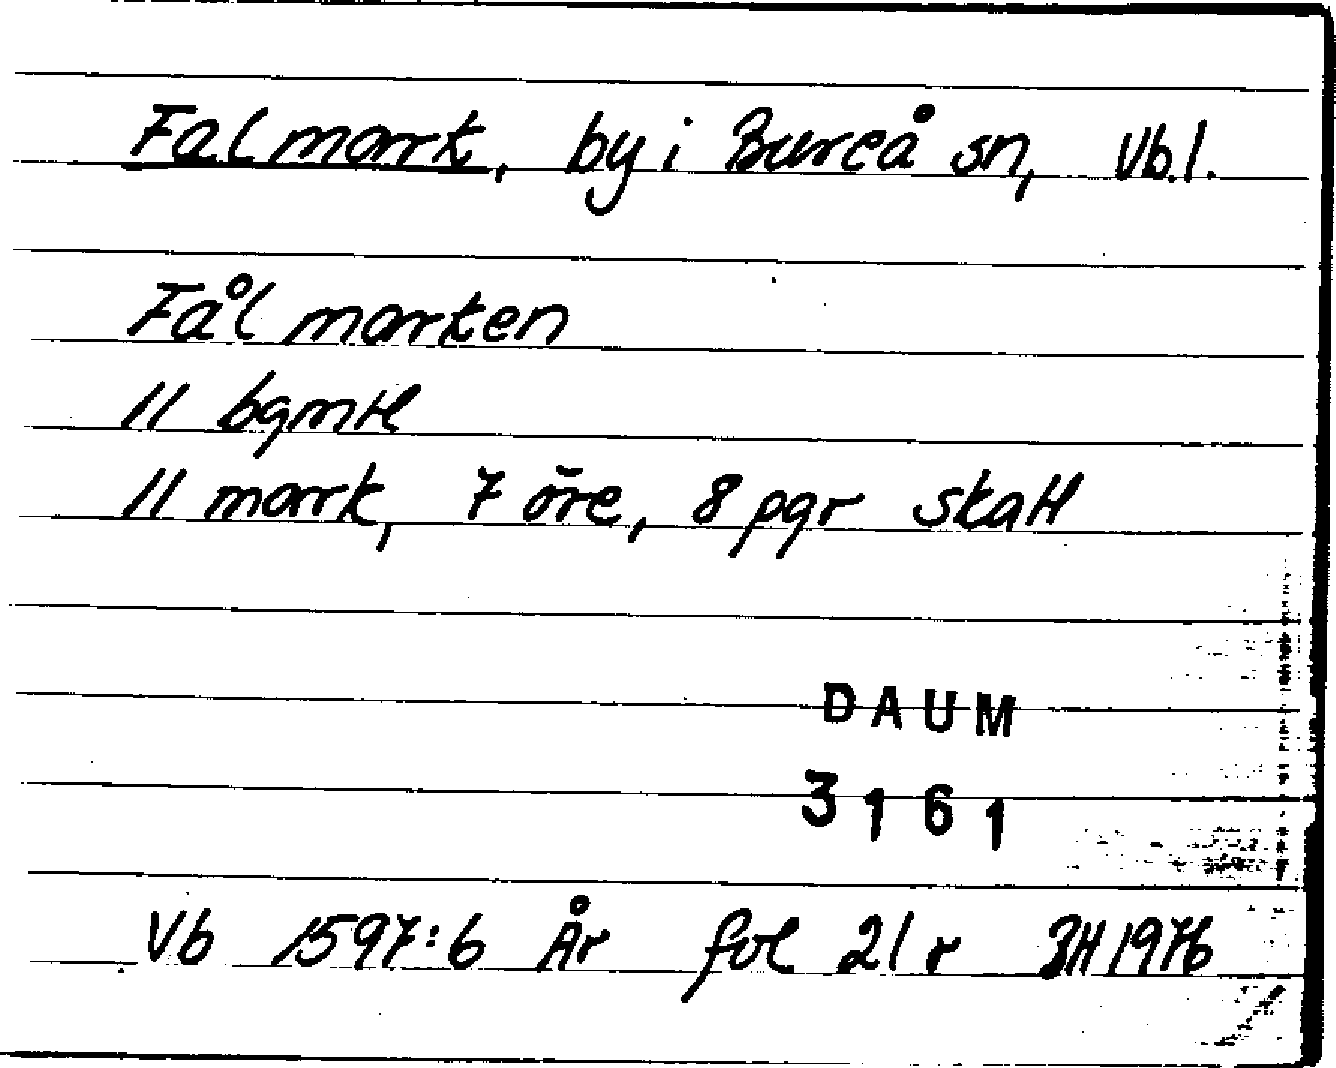 Falmark, by i Bureå sn, Vb.l.
Fål marken
11 bgmtl
11 mark, 7 öre, 8 pgr skatt
DAUM
3161
Vb 1597:6 År fol 21 r BH 1976